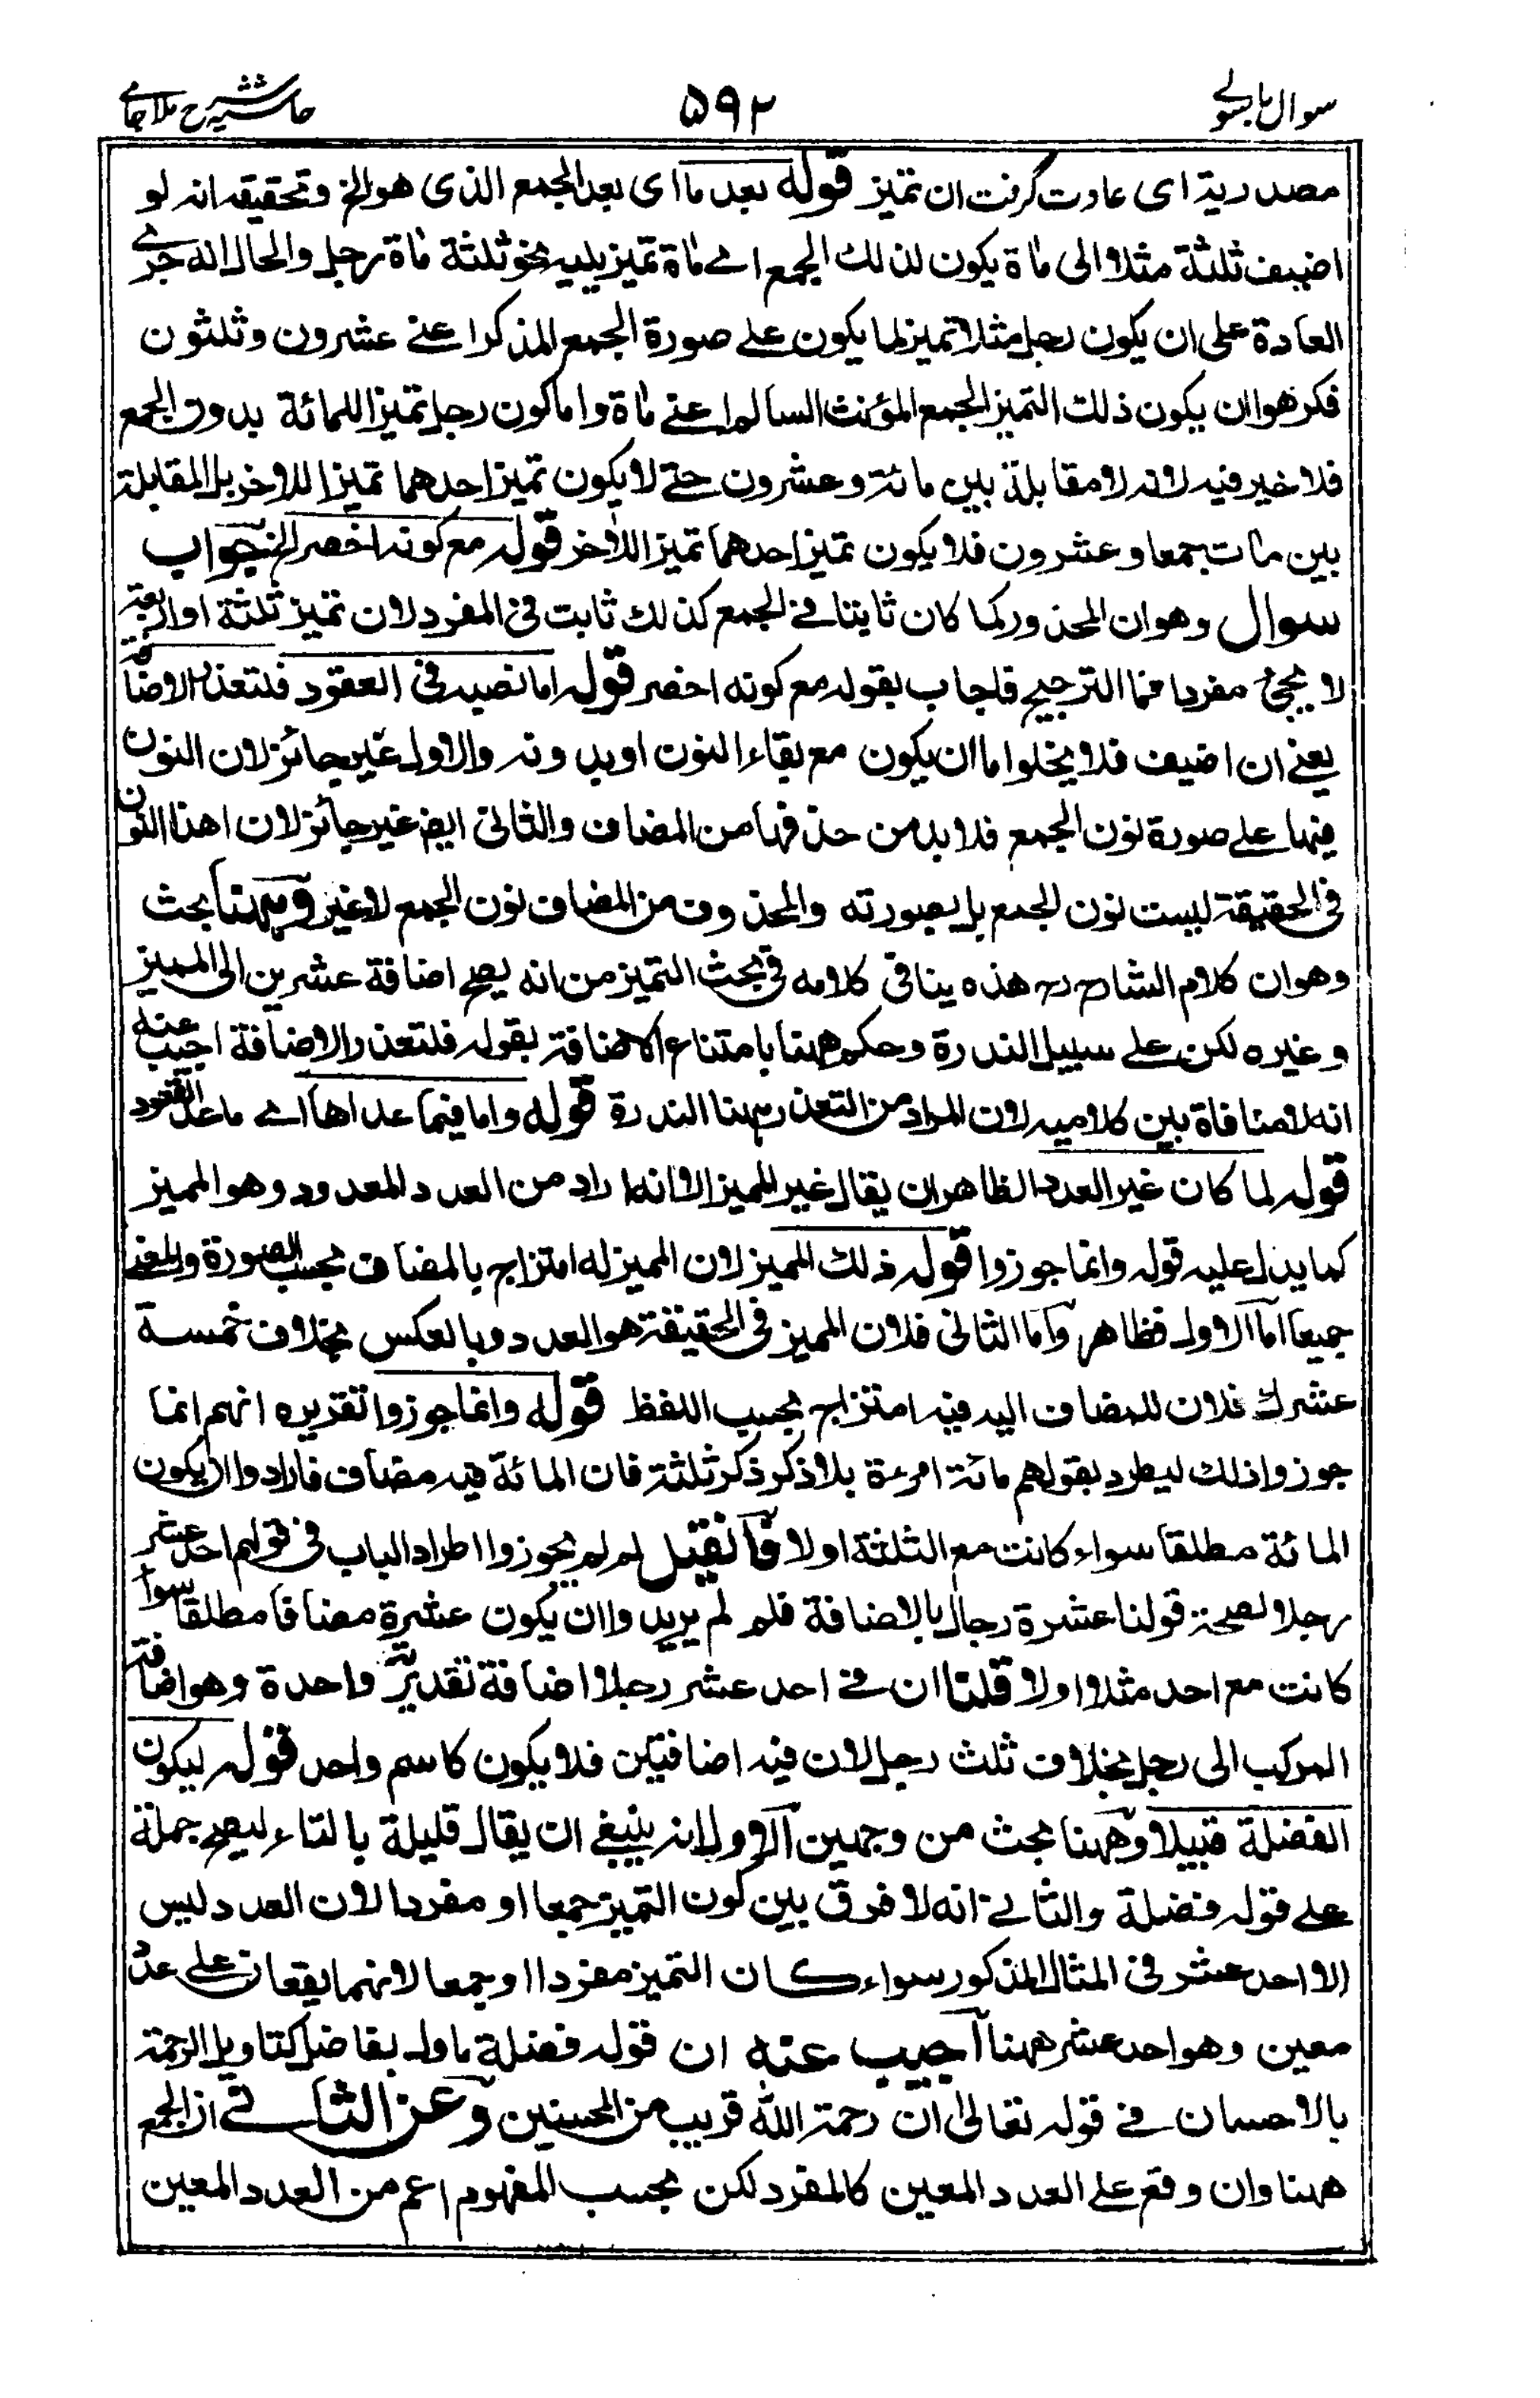 سوال باسولی ۵۹۲ حاشیہ شرح ملا جامی
مصدرية اى عادت گرفت ان تميز قوله بعد ما اى بعد الجمع الذى هو الخ وتحقيقه انه لو
اضيف ثلثة مثلا الى ماة يكون لذلك الجمع اے ماة تميز يليه نحو ثلثة ماة رجل والحال انه جرى
العادة على ان يكون رجل مثلا تميز لما يكون على صورة الجمع المذكر اعنے عشرون وثلثون
فكرهوا ان يكون ذلك التميز الجمع المؤنث السالم اعنے ماة واما كون رجل تميزا للمائة بدون الجمع
فلا خير فيه لانه لا مقابلة بين مائة وعشرون حتے لا يكون تميز احدهما تميزا للاخر بل المقابلة
بين مات جمعا وعشرون فلا يكون تميز احدهما تميزا للاخر قوله مع كونه اخصر الخ جواب
سوال وهو ان المحذور كما كان ثابتا فے الجمع كذلك ثابت فى المفرد لان تميز ثلثة او اربعة
لا يجئ مفردا فما الترجيح فاجاب بقوله مع كونه اخصر قوله اما نصبه فى العقود فلتعذر الاضافة
يعنے ان اضيف فلا يخلوا ما ان يكون مع بقاء النون او بدونه والاول غير جائز لان النون
فيها على صورة نون الجمع فلا بد من حذفها من المضاف والثانى ايض غير جائز لان هذا النون
فى الحقيقة ليست نون الجمع بل بصورته والمحذوف من المضاف نون الجمع لا غير وههنا بحث
وهو ان كلام الشارح رح هذه ينافى كلامه فى بحث التميز من انه يصح اضافة عشرين الى المميز
وغيره لكن على سبيل الندرة وحكم ههنا بامتناع الاضافة بقوله فلتعذر الاضافة اجيب عنه
انه لا منافاة بين كلاميه لان المراد من التعذر ههنا الندرة قوله واما فيما عداها اے ما عدا العقود
قوله لما كان غير العدد الظاهر ان يقال غير المميز الا انه اراد من العدد المعدود وهو المميز
كما يدل عليه قوله وانما جوزوا قوله ذلك المميز لان المميز له امتزاج بالمضاف بحسب الصورة والمعنے
جميعا اما الاول فظاهر واما الثانى فلان المميز فى الحقيقة هو العدد وبالعكس بخلاف خمسة
عشرك فلان للمضاف اليه فيه امتزاج بحسب اللفظ قوله وانما جوزوا تقديره انهم انما
جوزوا ذلك ليطرد بقولهم مائة امرءة بلا ذكر ذكر ثلثة فان المائة فيه مضاف فارادوا ان يكون
المائة مطلقا سواء كانت مع الثلثة اولا فان قيل لم لم يجوزوا اطراد الباب فى قولهم احد عشر
رجلا لصحة قولنا عشرة رجال بالاضافة فلم لم يريدوا ان يكون عشرة مضافا مطلقا سواء
كانت مع احد مثلا اولا قلنا ان فے احد عشر رجلا اضافة تقديرية واحدة وهو اضافة
المركب الى رجل بخلاف ثلث رجل لان فيه اضافتين فلا يكون كاسم واحد قوله ليكون
الفضلة قبيلا وههنا بحث من وجهين الاول انه ينبغى ان يقال قليلة بالتاء ليصح حمله
على قوله فضلة والثانے انه لا فرق بين كون التميز جمعا او مفردا لان العدد ليس
الا احد عشر فى المثال المذكور سواء كان التميز مفردا او جمعا لانهما يقعان على عدد
معين وهو احد عشر ههنا اجيب عنه ان قوله فضلة ماول بفاضل كتاويل الرحمة
بالاحسان فے قوله تعالى ان رحمة الله قريب من المحسنين وعن الثانى ان الجمع
ههنا وان وقع على العدد المعين كالمفرد لكن بحسب المفهوم اعم من العدد المعين